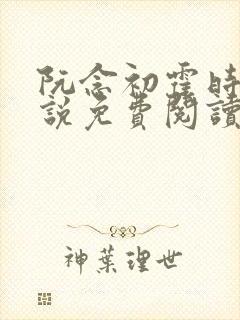 阮念初霆時
說免費閱讀
神葉理世